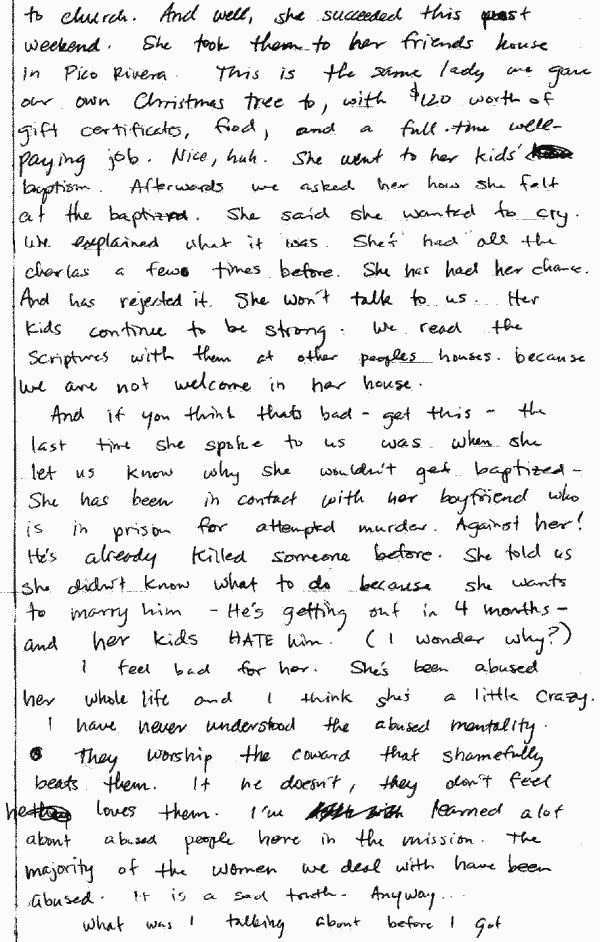 to church. And well, she succeeded this past
weekend. She took them to her friends house
in Pico Rivera. This is the same lady we gave
our own Christmas tree to, with $120 worth of
gift certificates, food, and a full-time well-
paying job. Nice, huh. She went to her kids'
baptism. Afterwards we asked her how she felt
at the baptized. She said she wanted to cry.
We explained what it was. She's had all the
charlas a few times before. She has had her chance.
And has rejected it. She won't talk to us. Her
kids continue to be strong. We read the
Scriptures with them at other peoples houses. because
we are not welcome in her house.
And if you think thats bad - get this - the
last time she spoke to us was when she
let us know why she wouldn't get baptized -
She has been in contact with her boyfriend who
is in prison for attempted murder. Against her!
He's already killed someone before. She told us
she didn't know what to do because she wants
to marry him - He's getting out in 4 months -
and her kids HATE him. (I wonder why?)
I feel bad for her. She's been abused
her whole life and I think she's a little crazy.
I have never understood the abused mentality.
They worship the coward that shamefully
beats them. If he doesn't, they don't feel
he loves them. I've learned alot
about abused people here in the mission. The
majority of the women we deal with have been
abused. It is a sad truth. Anyway...
what was I talking about before I got